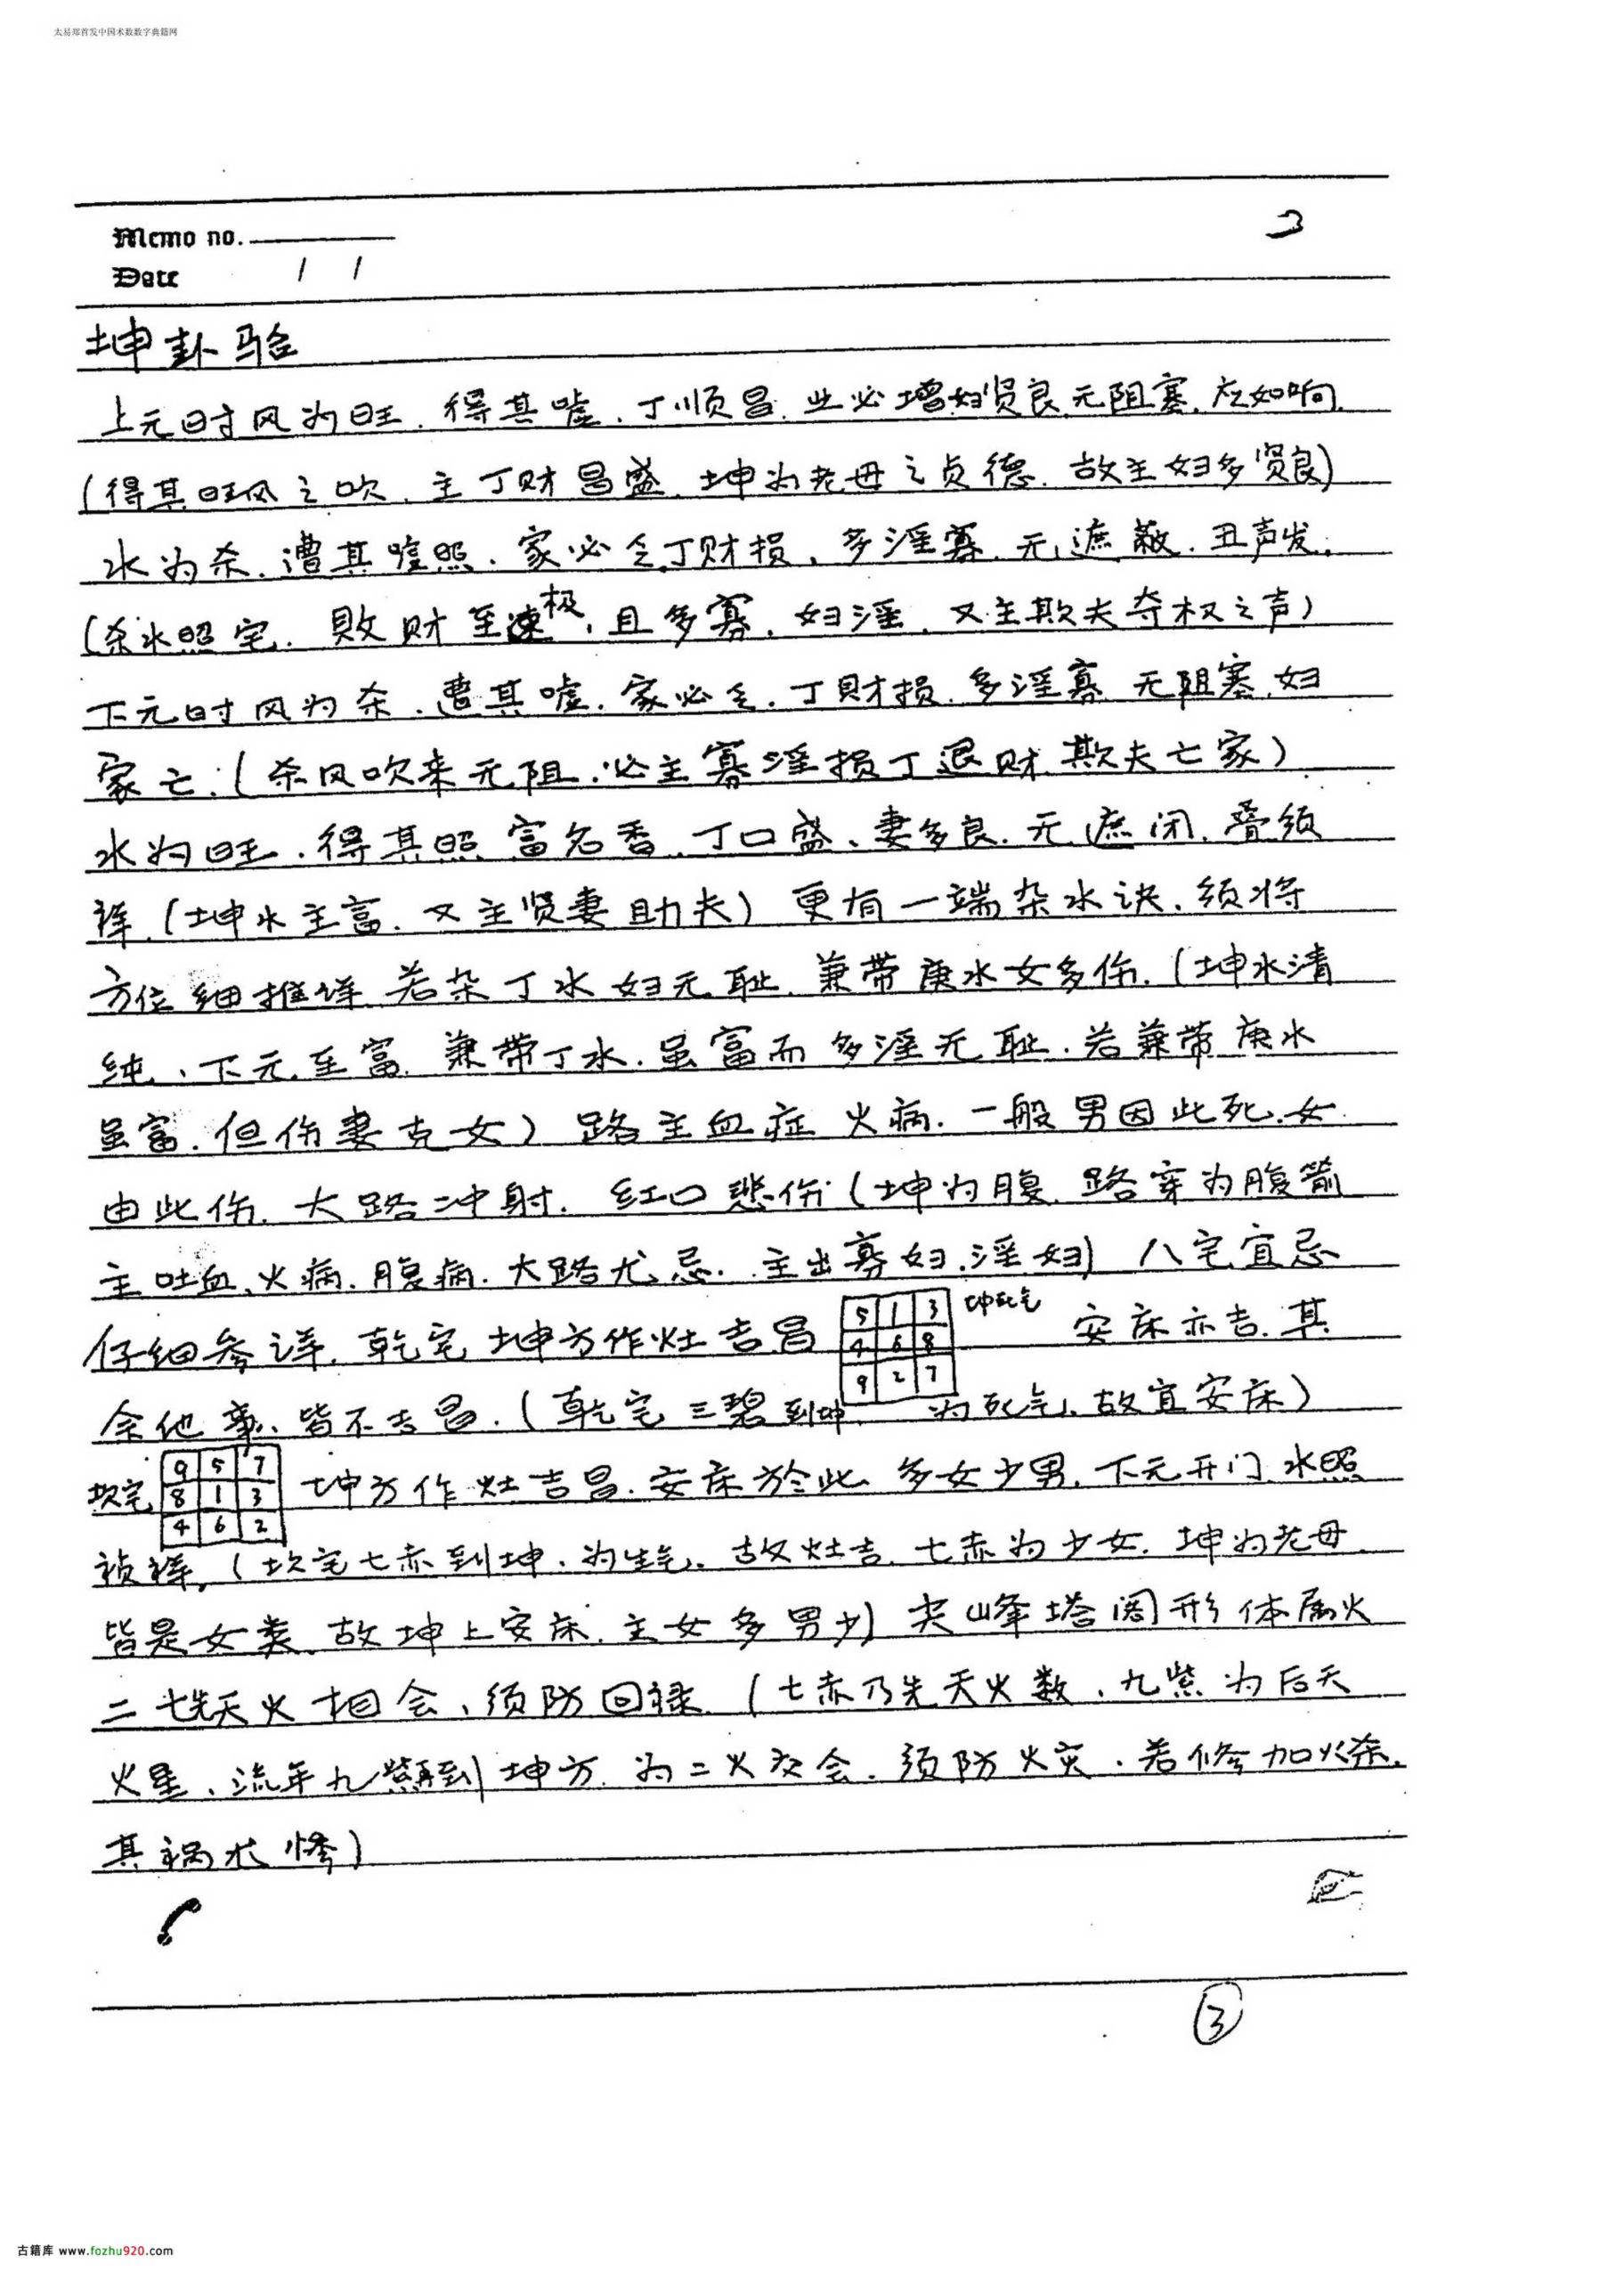 太易郑首发中国术数数字典籍网
3
Memo no.
Date / /
坤卦验
上元时风为旺.得其嘘.丁顺昌.业必增妇贤良无阻塞.应如响.
(得其旺风之吹.主丁财昌盛.坤为老母之贞德.故主妇多贤良)
水为杀.遭其噬照.家必乏.丁财损.多淫寡.无遮蔽.丑声发.
(杀水照宅.败财至速极.且多寡.妇淫.又主欺夫夺权之声)
下元时风为杀.遭其嘘.家必乏.丁财损.多淫寡.无阻塞.妇
家亡:(杀风吹来无阻.必主寡淫损丁退财.欺夫亡家)
水为旺.得其照富名香.丁口盛.妻多良.无遮闭.叠须
祥.(坤水主富.又主贤妻助夫)更有一端杂水诀.须将
方位细推详.若杂丁水妇无耻.兼带庚水女多伤.(坤水清
纯、下元至富.兼带丁水.虽富而多淫无耻.若兼带庚水
虽富.但伤妻克女)路主血症火病.一般男因此死.女
由此伤.大路冲射.红口悲伤(坤为腹.路穿为腹箭
主吐血、火病.腹病.大路尤忌.主出寡妇.淫妇)八宅宜忌
仔细参详.乾宅坤方作灶吉昌 5 1 3 坤死气 安床亦吉.其
4 6 8
9 2 7
余他章.皆不吉昌.(乾宅三碧到坤.为死气.故宜安床)
坎宅 9 5 7 坤方作灶吉昌.安床於此.多女少男.下元开门水照
8 1 3
4 6 2
祯祥.(坎宅七赤到坤.为生气.故灶吉.七赤为少女.坤为老母.
皆是女类.故坤上安床.主女多男少)尖峰塔阁形体属火
二七先天火相会、须防回禄.(七赤乃先天火数、九紫为后天
火星、流年九紫再到坤方.为二火交会.须防火灾.若修加火杀.
其祸尤惨)
3
古籍库 www.fozhu920.com